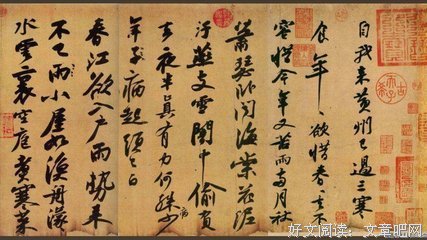 自我来黄州已過三寒
食年〻欲惜春〻去不
容惜今年又苦雨兩月秋
蕭瑟卧聞海棠花泥
汙燕支雪闇中偷負
去夜半真有力何殊病少
年子病起頭已白
春江欲入户雨勢来
不已雨小屋如漁舟濛〻
水雲裏空庖煮寒菜
好文阅读：文章吧网